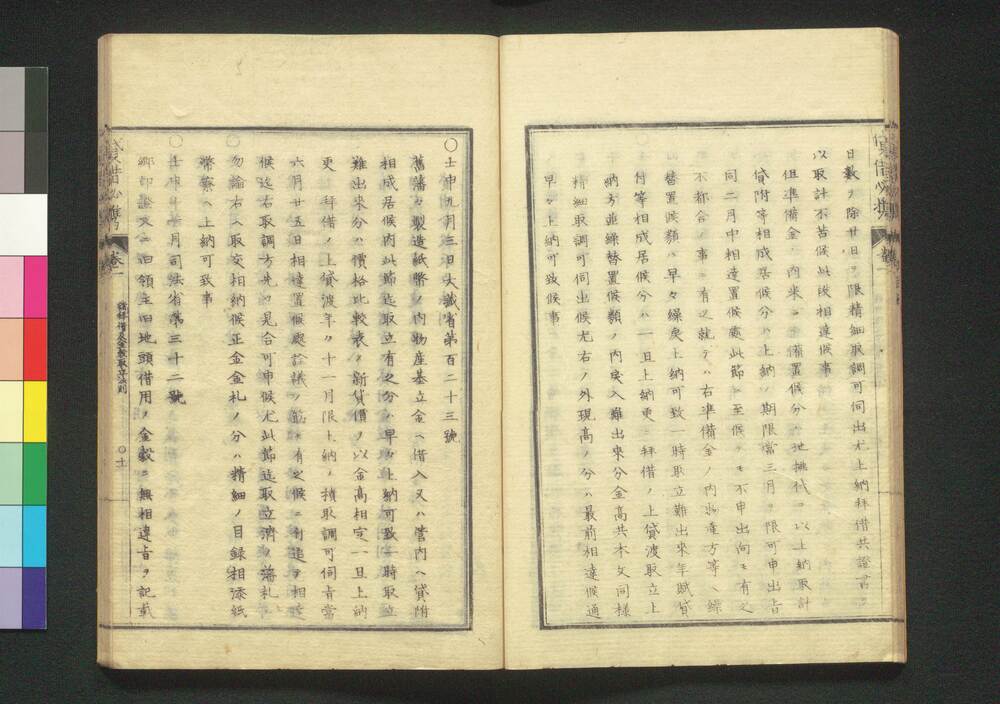 日數ヲ除廿日ヲ限精細取調可伺出尤上納拜借共證書ヲ
以取計不苦候此段相達候事
但準備金ノ内米ニテ備置候分ハ地拂代ヲ以上納取計
貸附等相成居候分ハ上納ノ期限當三月ヲ限可申出旨
同二月中相達置候處此節ニ至候テモ不申出向モ有之
不都合ノ事ニ有之就テハ右準備金ノ内物産方等ヘ繰
替置候類ハ早々繰戾上納可致一時取立難出來年賦貸
付等相成居候分ハ一旦上納更ニ拜借ノ上貸渡取立上
納方並繰替置候類ノ内戾入難出來分金高共本文同樣
精細取調可伺出候尤右ノ外現高ノ分ハ最前相達候通
早々上納可致候事
貸借必携
卷二
〇壬申九月三日大藏省第百二十三號
舊藩々製造紙幣ノ内物産基立金ヘ借入又ハ管内ヘ貸附
相成居候内此節迄取立有之分ハ早々上納可致一時取立
難出來分ハ價格比較表ノ新貨價ヲ以金高相定一旦上納
更ニ拜借ノ上貸渡年々十一月限上納ノ積取調可伺旨當
六月廿五日相達置候處詮議ノ筋モ有之候ニ付追テ相達
候迄右取調方先ツ見合可申候尤此節迄取立濟ノ藩札ハ
勿論右ヘ取交相納候正金金札ノ分ハ精細ノ目録相添紙
幣寮ヘ上納可致事
〇壬申年月司法省第三十二號
鄕印證文ニ旧領主旧地頭借用ノ金穀ニ無相違旨ヲ記載
貸借必携
卷二
〇十